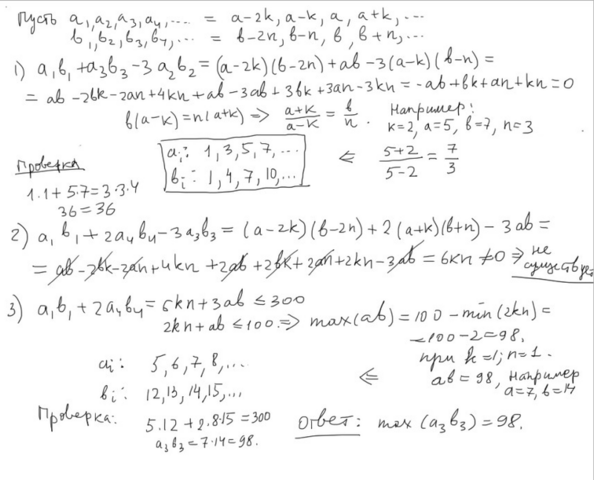 Пусть a₁, a₂, a₃, a₄, ... = a-2k, a-k, a, a+k, ...
b₁, b₂, b₃, b₄, ... = b-2n, b-n, b, b+n, ...
1) a₁b₁+a₃b₃-3a₂b₂=(a-2k)(b-2n)+ab-3(a-k)(b-n)=
= ab-2bk-2an+4kn+ab-3ab+3bk+3an-3kn=-ab+bk+an+kn=0
b(a-k)=n(a+k) => (a+k)/(a-k) = b/n. Например:
k=2, a=5, b=7, n=3
aᵢ: 1, 3, 5, 7, ... <= (5+2)/(5-2) = 7/3
bᵢ: 1, 4, 7, 10, ...
Проверка
1·1+5·7=3·3·4
36=36
2) a₁b₁+2a₄b₄-3a₃b₃=(a-2k)(b-2n)+2(a+k)(b+n)-3ab=
= ab-2bk-2an+4kn+2ab+2bk+2an+2kn-3ab=6kn≠0 => не
существует
3) a₁b₁+2a₄b₄=6kn+3ab≤300
2kn+ab≤100. => max(ab)=100-min(2kn)=
=100-2=98.
при k=1; n=1.
aᵢ: 5, 6, 7, 8, ...
bᵢ: 12, 13, 14, 15, ... <= ab=98, Например
a=7, b=14
Проверка: 5·12+2·8·15=300
a₃b₃=7·14=98.
Ответ: max(a₃b₃)=98.